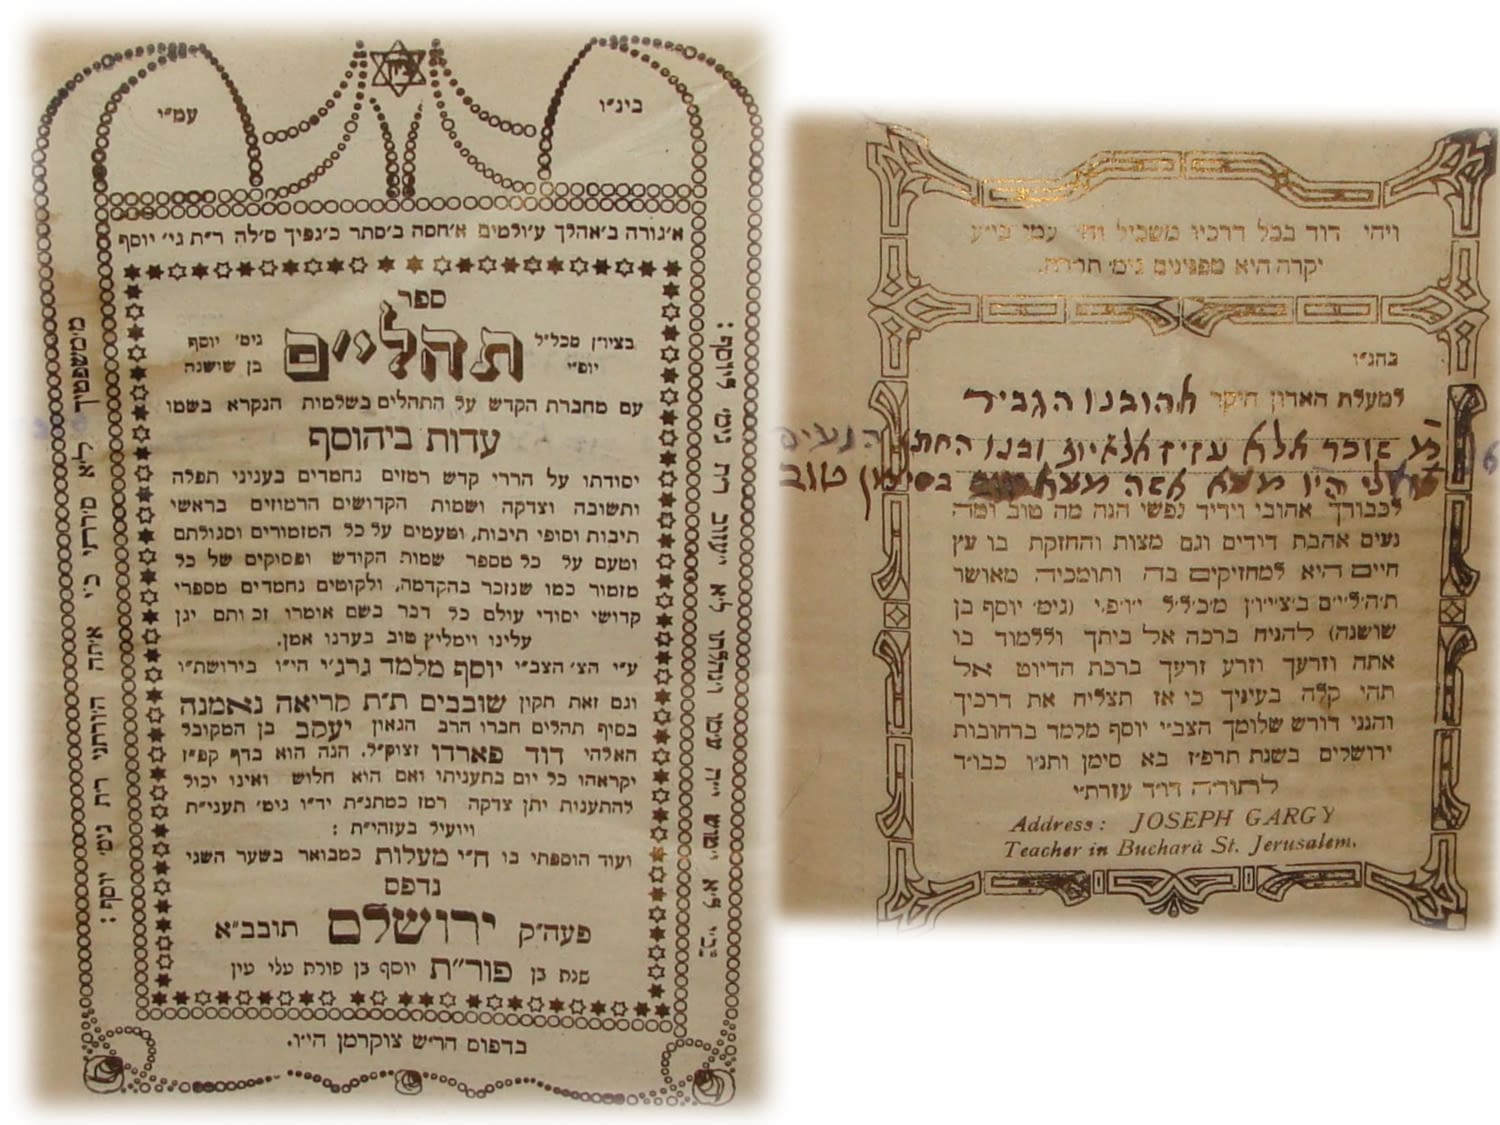 בינ״ו
עמ״י
ציון
א׳גורה ב׳אהלך ע׳ולמים א׳חסה ב׳סתר כ׳נפיך ס׳לה ר״ת גי׳ יוסף
ספר
בציו״ן מכל״ל תהלי״ם גימ׳ יוסף
יופ״י בן שושנה
עם מחברת הקדש על התהלים בשלמות הנקרא בשמו
עדות ביהוסף
יסודתו על הררי קדש רמזים נחמדים בעניני תפלה
ותשובה וצדקה ושמות הקדושים הרמוזים בראשי
תיבות וסופי תיבות, וטעמים על כל המזמורים וסגולתם
וטעם על כל מספר שמות הקודש ופסוקים של כל
מזמור כמו שנזכר בהקדמה, ולקוטים נחמדים מספרי
קדושי יסודי עולם כל דבר בשם אומרו זכותם יגן
עלינו וימליץ טוב בעדנו אמן.
ע״י הצ׳ הצב״י יוסף מלמד גרג׳י הי״ו בירושת״ו
וגם זאת תקון שובבים ת״ת קריאה נאמנה
בסוף תהלים חברו הרב הגאון יעקב בן המקובל
האלהי דוד פארדו זצוק״ל. הנה הוא בדף קפ״ז
יקראהו כל יום בתעניתו ואם הוא חלוש ואינו יכול
להתענות יתן צדקה רמז כמתנ״ת יד״ו גימ׳ תעני״ת
ויועיל בעזהי״ת :
ועוד הוספתי בו ח״י מעלות כמבואר בשער השני
נדפס
פעה״ק ירושלם תובב״א
שנת בן פור״ת יוסף בן פורת עלי עין
בדפוס הר״ש צוקרמן הי״ו.
מ׳משפטיך ל׳א סרתי כ׳י א׳תה הורתני רת גימ׳ יוסף :
ויהי דוד בכל דרכיו משכיל וה׳ עמו
יקרה היא מפנינים גימ׳ תורה.
בהנ״ו
למעלת האדון היקר אהובנו הגביר
ובנו החתן הנעים
מצא אשה מצא טוב בסימן טוב
לכבודך אהובי וידיד נפשי הנה מה טוב ומה
נעים אהבת דודים וגם מצות והחזקת בו עץ
חיים היא למחזיקים בה ותומכיה מאושר
ת׳ה׳ל׳י׳ם ב׳צ׳י׳ו׳ן מ׳כ׳ל׳ל י׳ו׳פ׳י (גימ׳ יוסף בן
שושנה) להניח ברכה אל ביתך וללמוד בו
אתה וזרעך וזרע זרעך ברכת הדיוט אל
תהי קלה בעיניך כי אז תצליח את דרכיך
והנני דורש שלומך הצב״י יוסף מלמד ברחובות
ירושלים בשנת תרפ״ז בא סימן ותנ״ו כבו״ד
לתור״ה דו״ד עזרת״י
Address: JOSEPH GARGY
Teacher in Buchara St. Jerusalem.